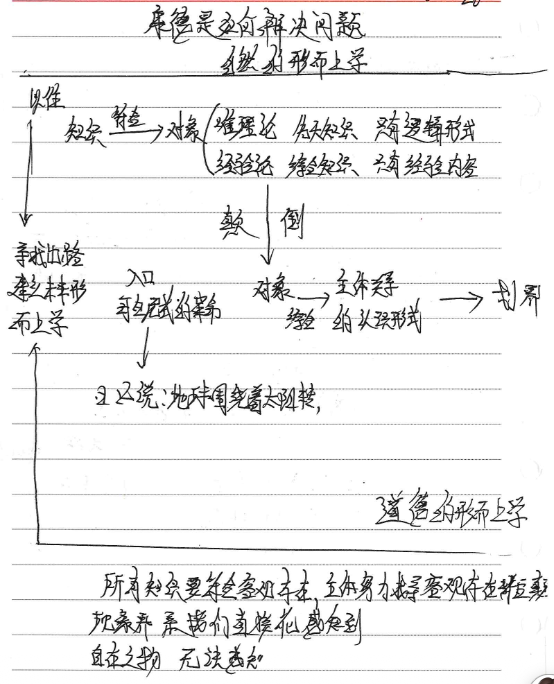 康德是如何解决问题
自然的形而上学
以往
知识 符合 对象 唯理论 先天知识 只有逻辑形式
经验论 综合知识 只有经验内容
颠倒
寻找出路
建立未来形
而上学
入口
哥白尼式的革命
对象 符合 主体先天
的认识形式
划界
日心说:地球围绕着太阳转,
道德的形而上学
所有知识要符合客观存在,主体努力探寻客观存在
现象界 是我们直接能感知到
自在之物 无法感知